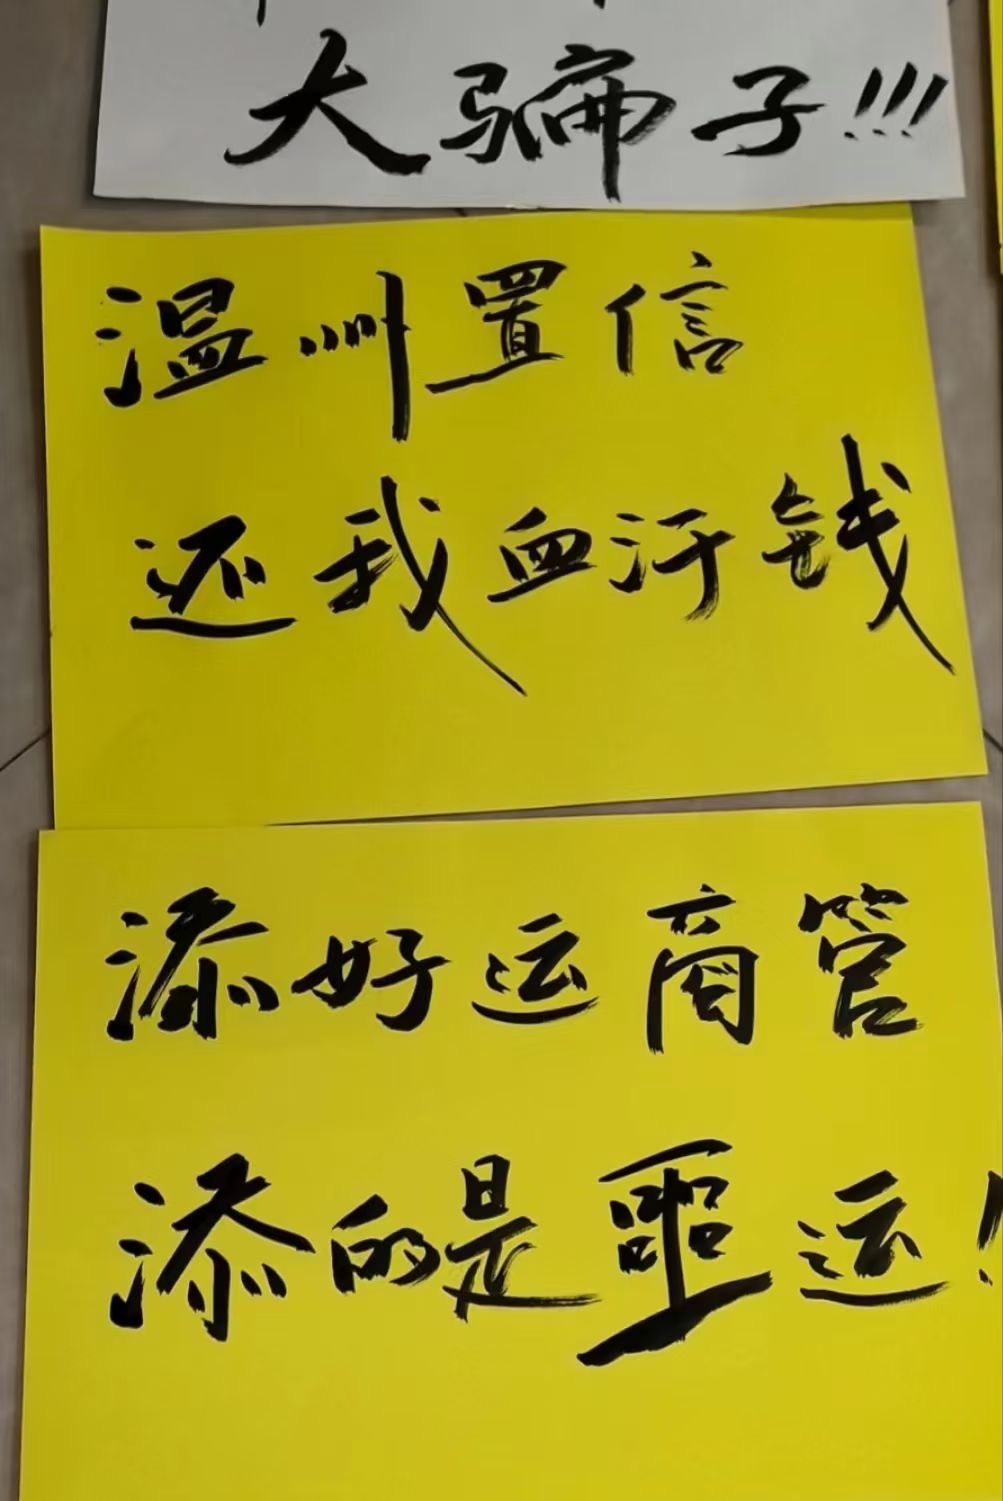 大骗子!!!
温州置信
还我血汗钱
添好运商管
添的是噩运!